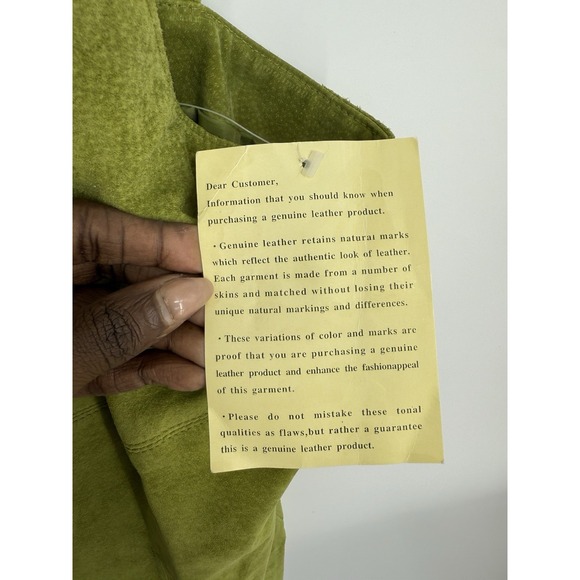 Dear Customer,
Information that you should know when
purchasing a genuine leather product.
· Genuine leather retains natural marks
which reflect the authentic look of leather.
Each garment is made from a number of
skins and matched without losing their
unique natural markings and differences.
· These variations of color and marks are
proof that you are purchasing a genuine
leather product and enhance the fashionappeal
of this garment.
· Please do not mistake these tonal
qualities as flaws,but rather a guarantee
this is a genuine leather product.